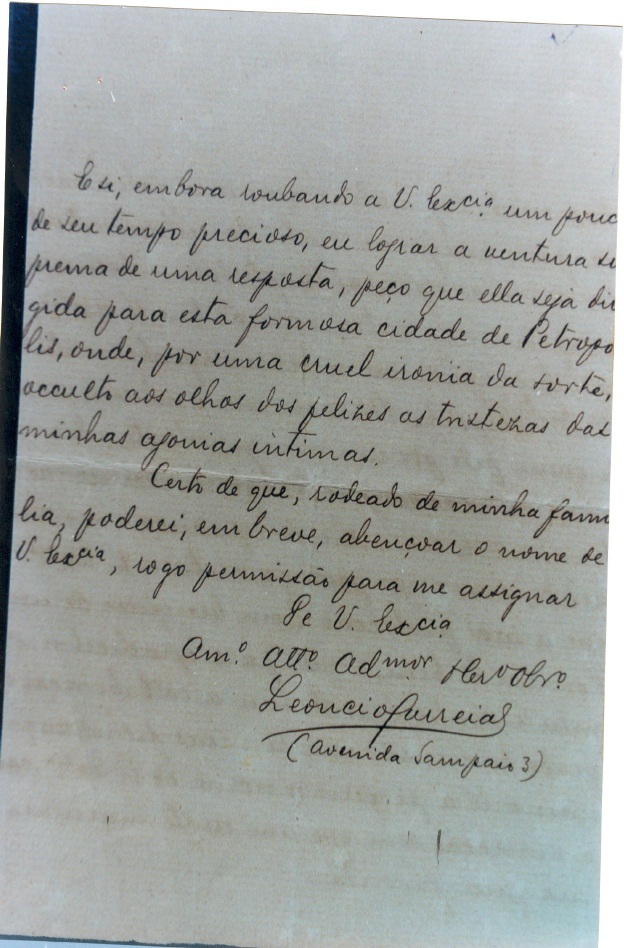 E si, embora roubando a V. Excia. um pouc
de seu tempo precioso, eu lograr a ventura su
prema de uma resposta, peço que ella seja diri
gida para esta formosa cidade de Petropo
lis, onde, por uma cruel ironia da sorte,
occulto aos olhos dos felizes as tristezas das
minhas agonias intimas.
Certo de que, rodeado de minha fami
lia, poderei, em breve, abençoar o nome de
V. Excia, rogo permissão para me assignar
De V. Excia.
Amº. Attº. Admor. Obrº.
Leoncio Correia
(Avenida Sampaio 3)